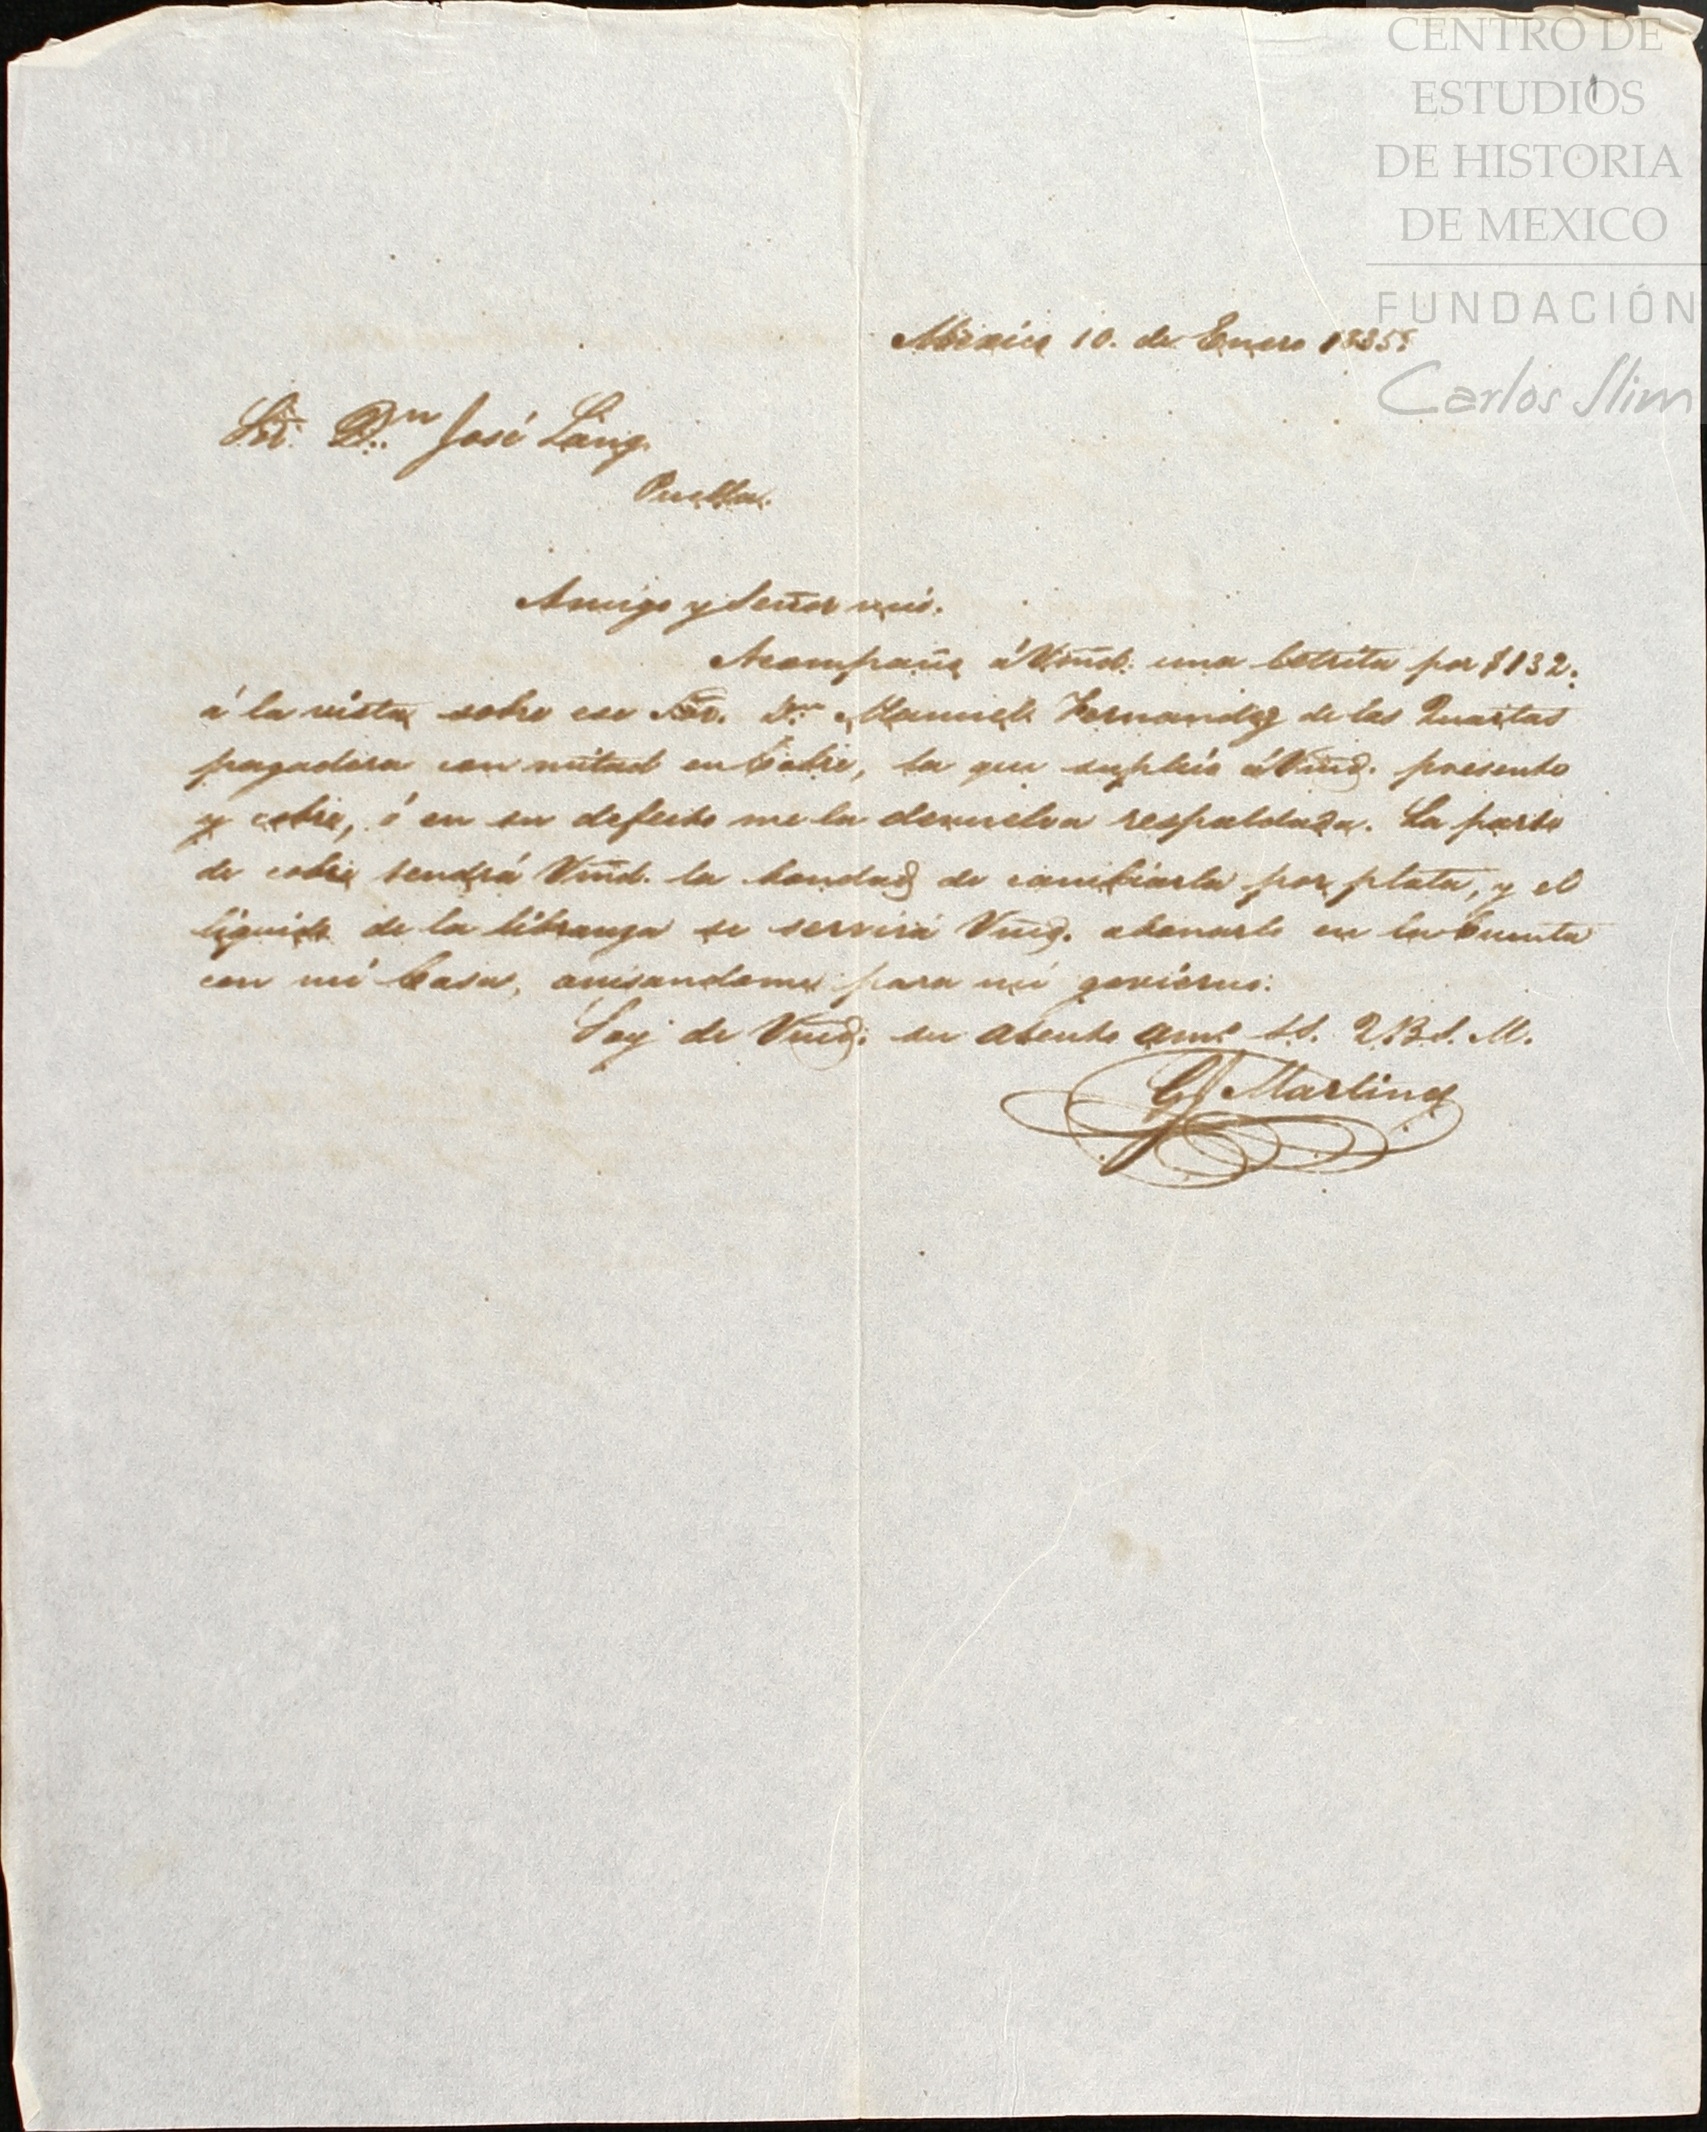 CENTRO DE
ESTUDIOS
DE HISTORIA
DE MEXICO
FUNDACIÓN
Carlos Slim
México 10. de Enero 1835.
Sór. Dn José Lang.
Puebla.
Amigo y Señor mió.
Acompaño á Vmd. una letrita por $132.
á la vista sobre ese Sór. Dn Manuel Fernandez de las Quartas
pagadera con mitad en Cobre, la que suplico á Vmd. presente
y cobre, ó en su defecto me la devuelva respaldada. La parte
de cobre tendrá Vmd. la bondad de cambiarla por plata, y el
líquido de la libranza se servirá Vmd. abonarlo en la Cuenta
con mi Casa, avisandome para mi govierno.
Soy de Vmd. su atento amo S.S. Q.B.S.M.
Martinez